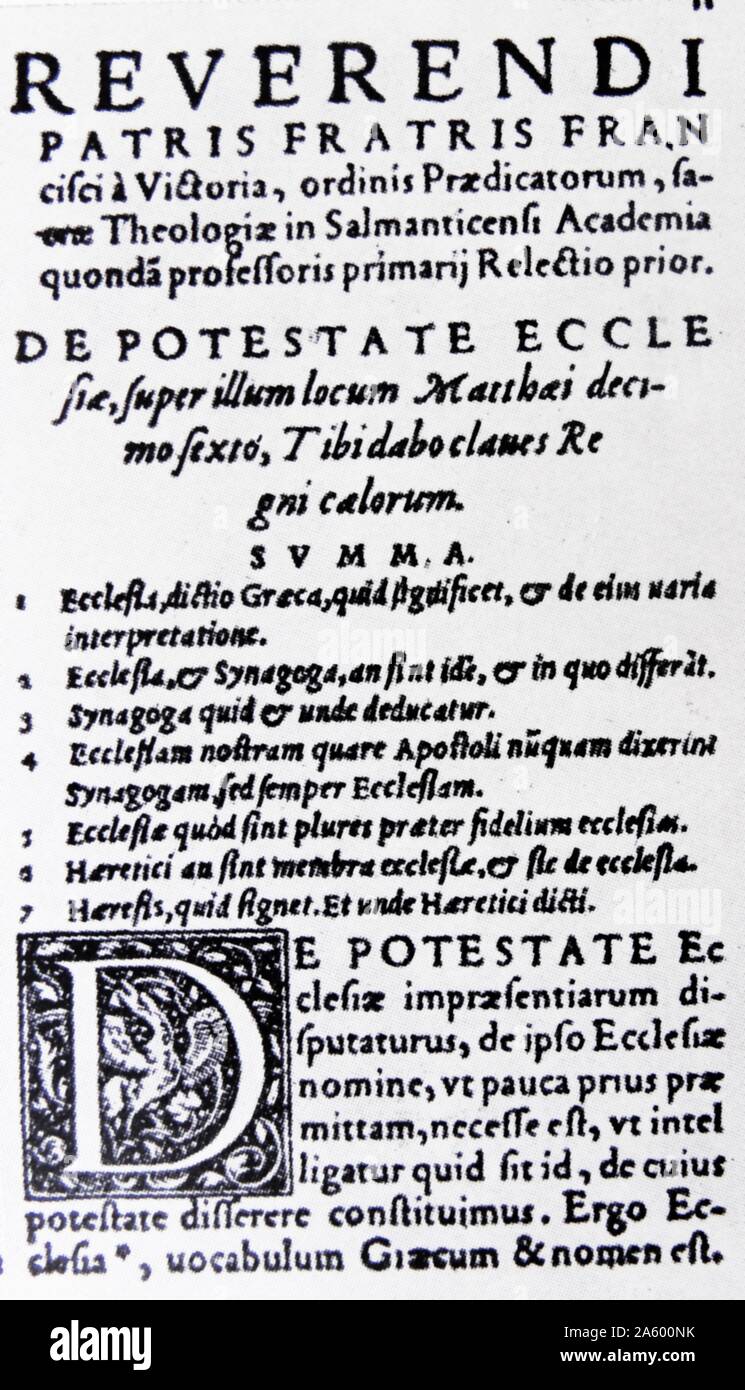 REVERENDI
PATRIS FRATRIS FRAN
ciſci à Victoria, ordinis Prædicatorum, ſa-
Theologiæ in Salmanticenſi Academia
quondã profeſſoris primarij Relectio prior.
DE POTESTATE ECCLE
ſiæ, ſuper illum locum Matthæi deci-
mo ſexto, Tibi dabo claues Re
gni cælorum.
SVMMA.
1 Eccleſia, dictio Græca, quid ſignificet, & de eius uaria
interpretatione.
2 Eccleſia, & Synagoga, an ſint idẽ, & in quo differãt.
3 Synagoga quid & unde deducatur.
4 Eccleſiam noſtram quare Apoſtoli nũquam dixerint
Synagogam, ſed ſemper Eccleſiam.
5 Eccleſiæ quòd ſint plures præter fidelium eccleſias.
6 Hæretici an ſint membra eccleſiæ, & ſic de eccleſia.
7 Hæreſis, quid ſignet. Et unde Hæretici dicti.
DE POTESTATE Ec
cleſiæ impræſentiarum di-
ſputaturus, de ipſo Eccleſiæ
nomine, vt pauca prius præ
mittam, neceſſe eſt, vt intel
ligatur quid ſit id, de cuius
poteſtate diſſerere conſtituimus. Ergo Ec-
cleſia*, uocabulum Græcum & nomen eſt.
alamy
alamy
alamy
alamy
Image ID: 2A600NK
www.alamy.com